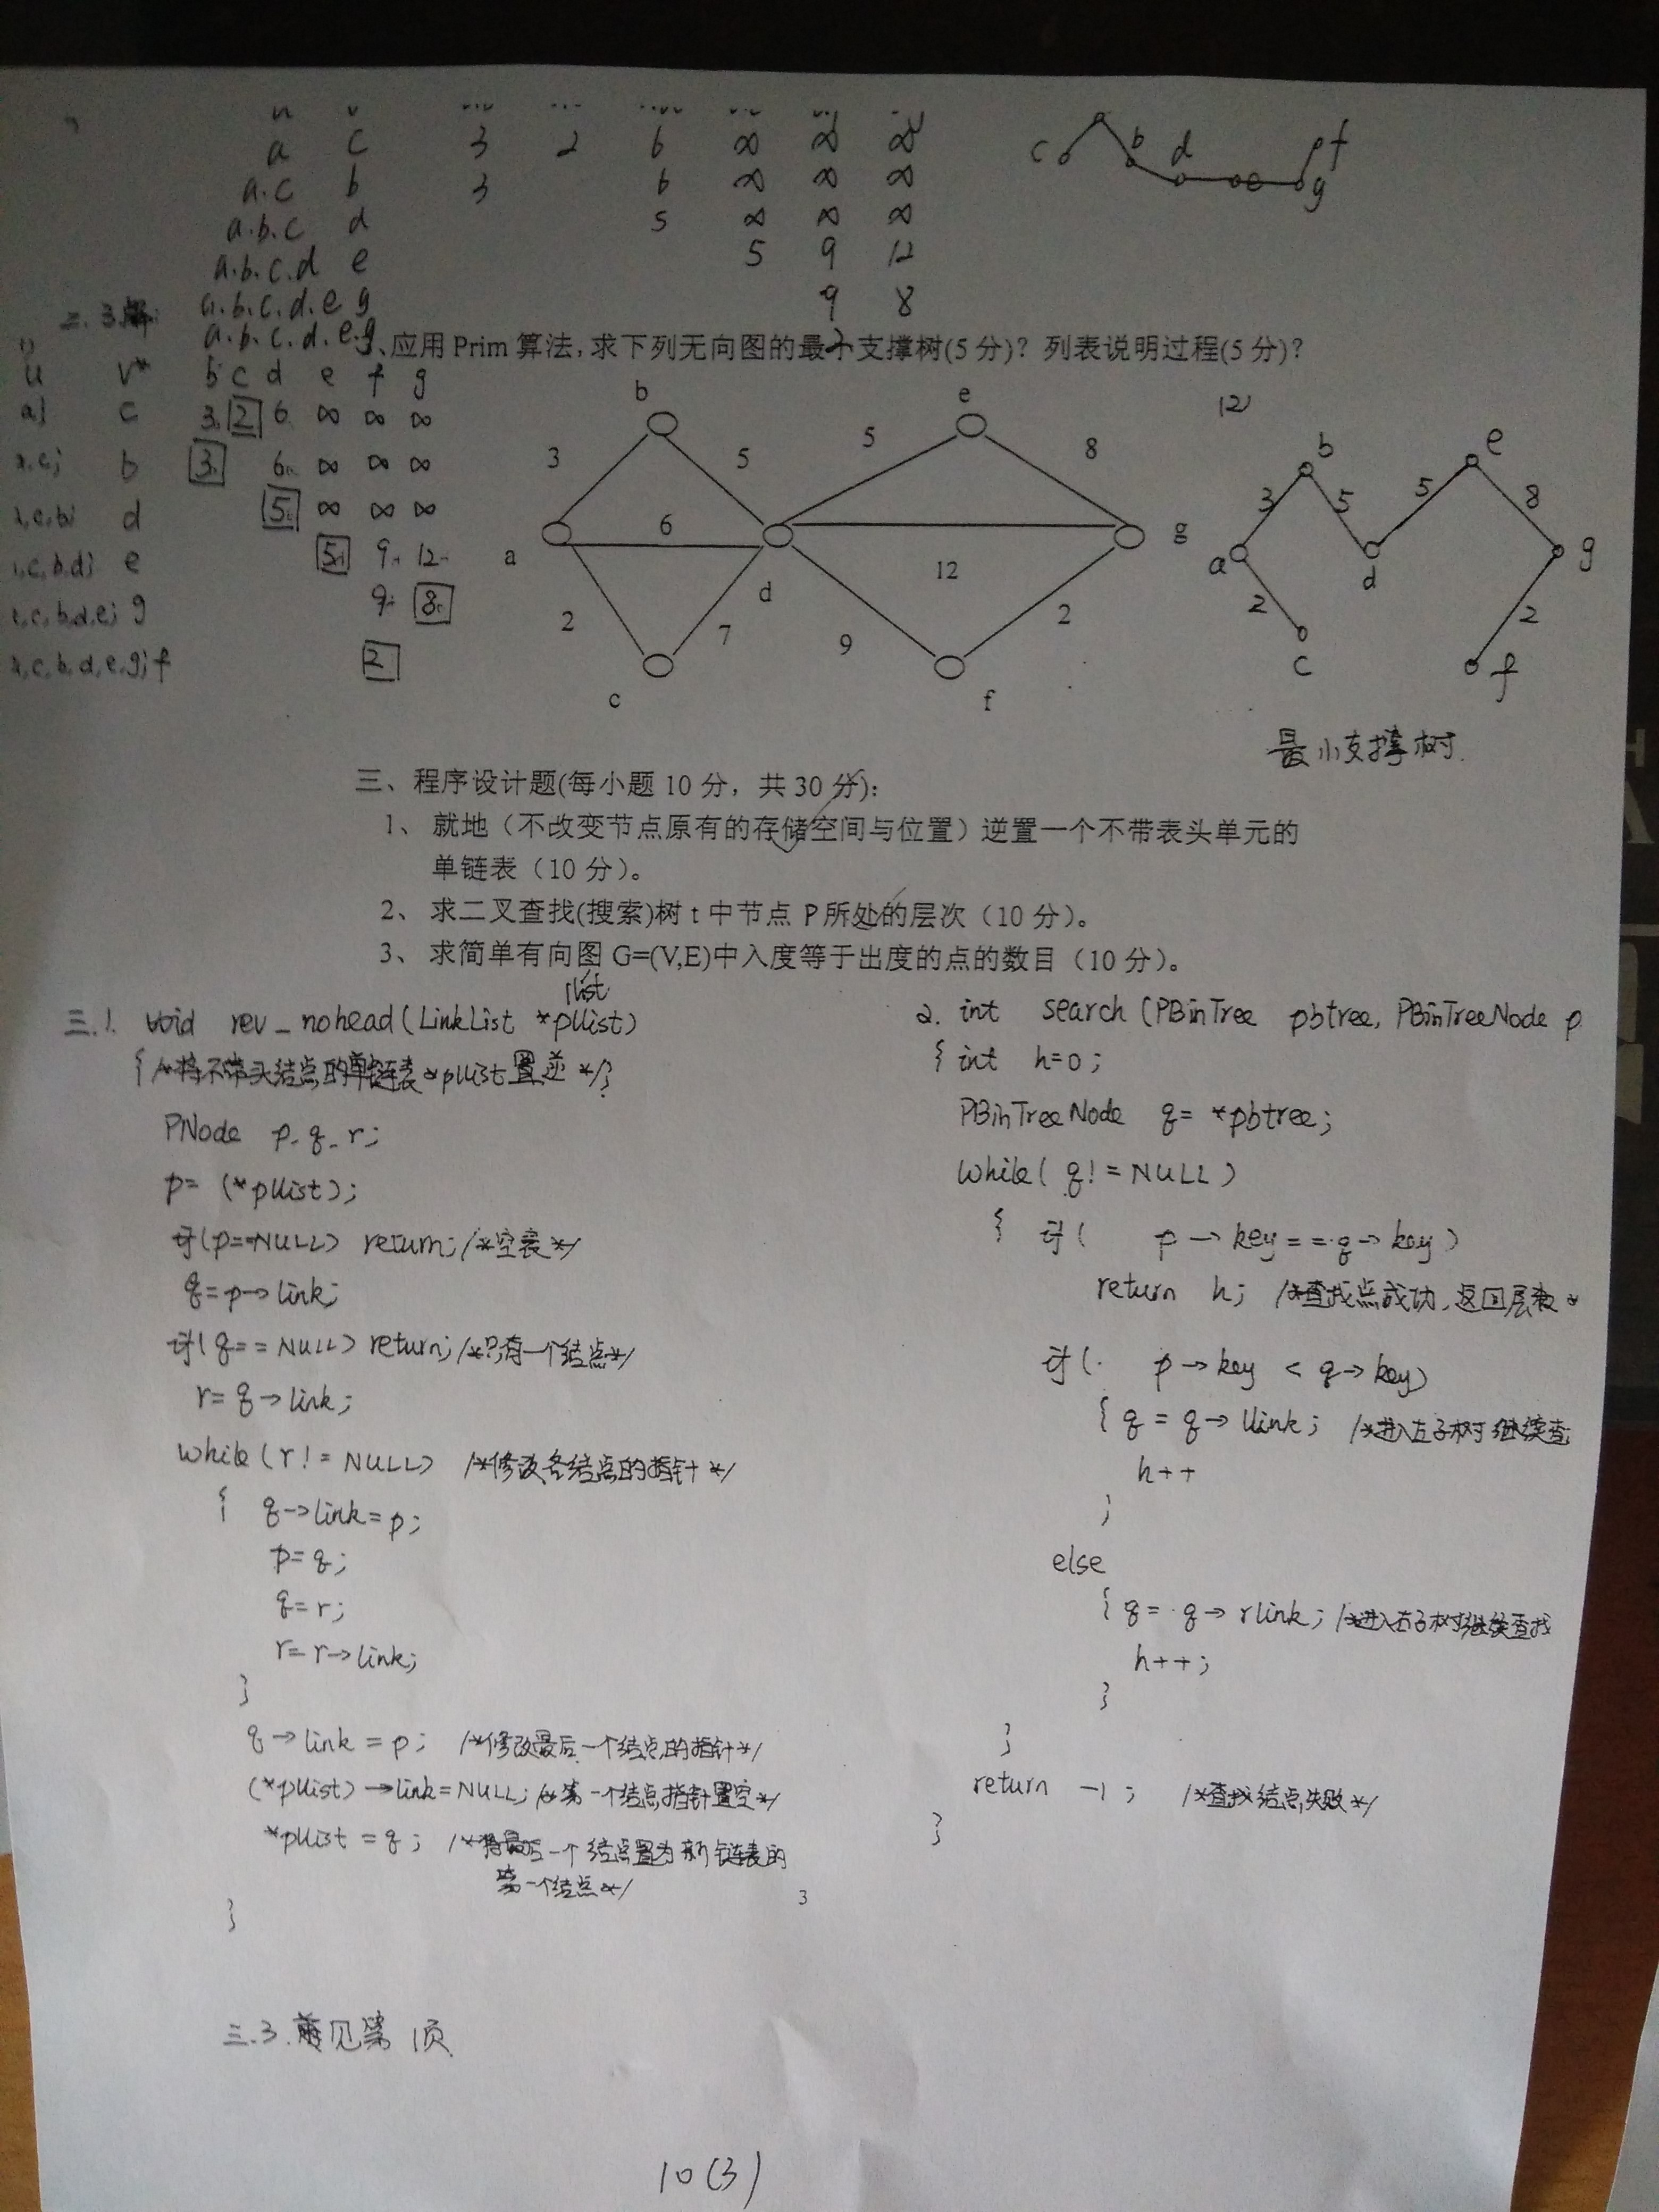 a c 3 2 6 ∞ ∞ ∞
a.c b 3 6 ∞ ∞ ∞
a.b.c d 5 ∞ ∞ ∞
a.b.c.d e 5 9 12
a.b.c.d.e g 9 8
a.b.c.d.e.g
c b d e f g
二.3.解:
3、应用 Prim 算法,求下列无向图的最小支撑树(5 分)？列表说明过程(5 分)？
u v* b c d e f g
a} c 3 2 6 ∞ ∞ ∞
a,c} b 3 6 ∞ ∞ ∞
a,c,b} d 5 ∞ ∞ ∞
a,c,b,d} e 5 9 12
a,c,b,d,e} g 9 8
a,c,b,d,e,g} f 2
b e
3 5 5 8
a 6 d 12 g
2 7 9 2
c f
(2)
b e
3 5 5 8
a d g
2 2
c f
最小支撑树.
三、程序设计题(每小题 10 分，共 30 分):
1、 就地（不改变节点原有的存储空间与位置）逆置一个不带表头单元的
单链表（10 分）。
2、 求二叉查找(搜索)树 t 中节点 P 所处的层次（10 分）。
3、 求简单有向图 G=(V,E)中入度等于出度的点的数目（10 分）。
llist
三.1. void rev_nohead(LinkList *pllist)
{ /*将不带头结点的单链表*pllist置逆*/
PNode p, q, r;
p= (*pllist);
if(p==NULL) return; /*空表*/
q=p->link;
if(q==NULL) return; /*只有一个结点*/
r=q->link;
while(r!=NULL) /*修改各结点的指针*/
{ q->link=p;
p=q;
q=r;
r=r->link;
}
q->link=p; /*修改最后一个结点的指针*/
(*pllist)->link=NULL; /*第一个结点指针置空*/
*pllist=q; /*将最后一个结点置为新链表的
第一个结点*/
}
2. int search(PBinTree pbtree, PBinTreeNode p
{ int h=0;
PBinTreeNode q= *pbtree;
while(q!=NULL)
{ if( p->key==q->key)
return h; /*查找点成功,返回层数*
if( p->key < q->key)
{ q=q->llink; /*进入左子树继续查
h++
}
else
{ q=q->rlink; /*进入右子树继续查找
h++;
}
}
return -1; /*查找结点失败*/
}
3
三.3. 见第1页
10(3)